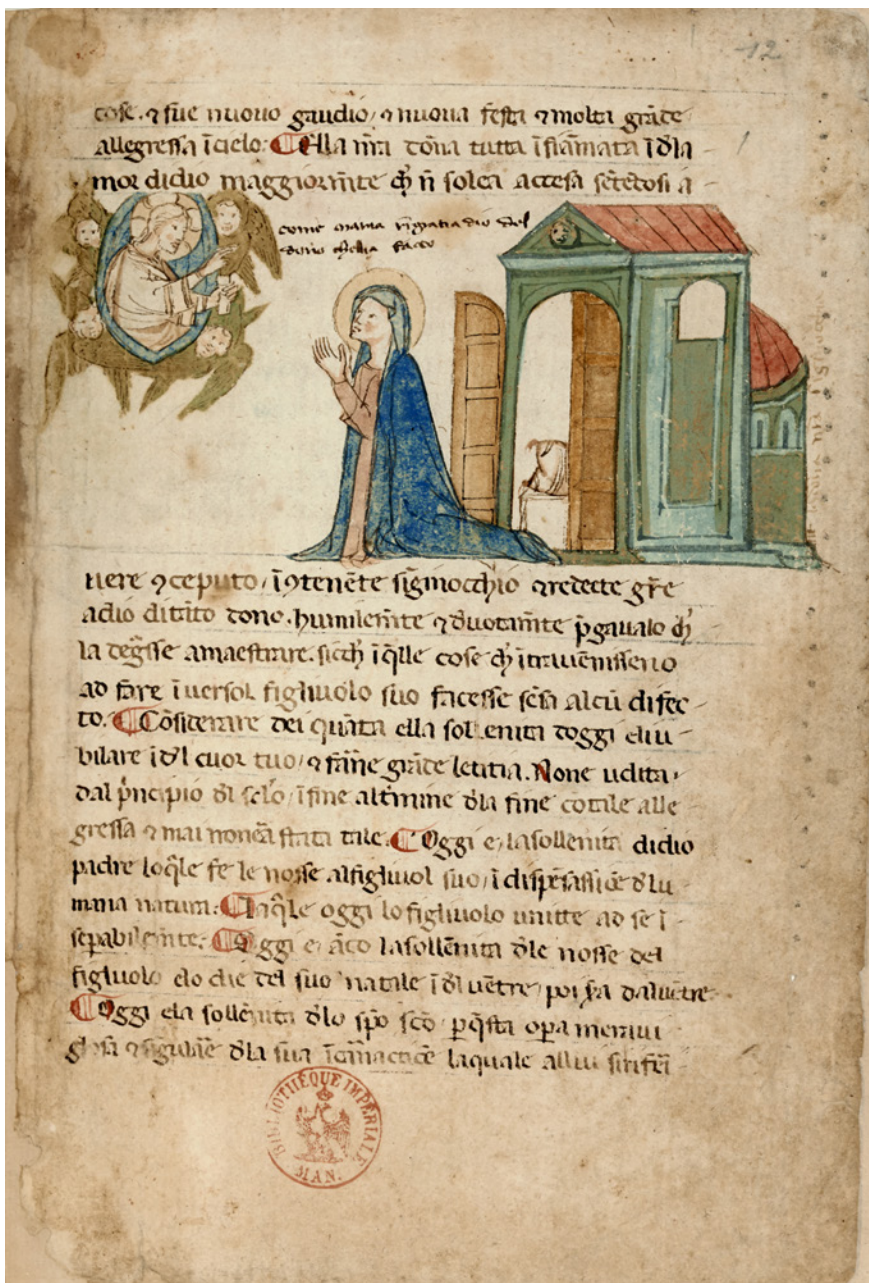 12
cose. ⁊ fue nuouo gaudio ⁊ nuoua festa ⁊ molta grãde
allegressa ĩcielo. Ella nr̃a dõna tutta ĩfiãmata ĩd'la
mor didio maggiorm̃te ch̃ ñ solea accesa sẽtẽdosi a
come maria rĩgratia dio del
dono chellia facto
uere ꝯceputo, ĩꝯtenẽte sĩginocchio ⁊ redecte gr̃e
adio ditãto dono. humilem̃te ⁊ d'uotam̃te p̃gaualo ch̃
la degn̄sse amaestrare. sicch̃ ĩq̃lle cose ch̃ ĩtrauenisseno
ad fare ĩuersol figliuolo suo facesse sẽsa alcũ difec
to. Cõsiderare dei quãta ella sollenita doggi eiu
bilare ĩd'l cuor tuo, ⁊ fãne grãde letitia. None udita
dal p̃ncipio d'l selo, ĩfine altimine d'la fine cotale alle
gressa ⁊ mai nonera stata tale. Oggi e, lasollenita didio
padre loq̃le fe le nosse alfigliuol suo, ĩ dispẽsassiõe d'lu
mana natura. Laq̃le oggi lo figliuolo unitte ad se ĩ
sepabilem̃te. Oggi e, ãco lasollẽnita d'le nosse del
figliuolo elo die del suo natale ĩd'l uẽtre, poi sera daluẽtre
Oggi ela sollẽnita d'lo spo sc̃o p̱q̃sta op̱a meraui
gliosa ⁊ sigulare d'la sua ĩcarnatiõe laquale allui sirifeĩ
BIBLIOTHÈQUE IMPÉRIALE
MAN.